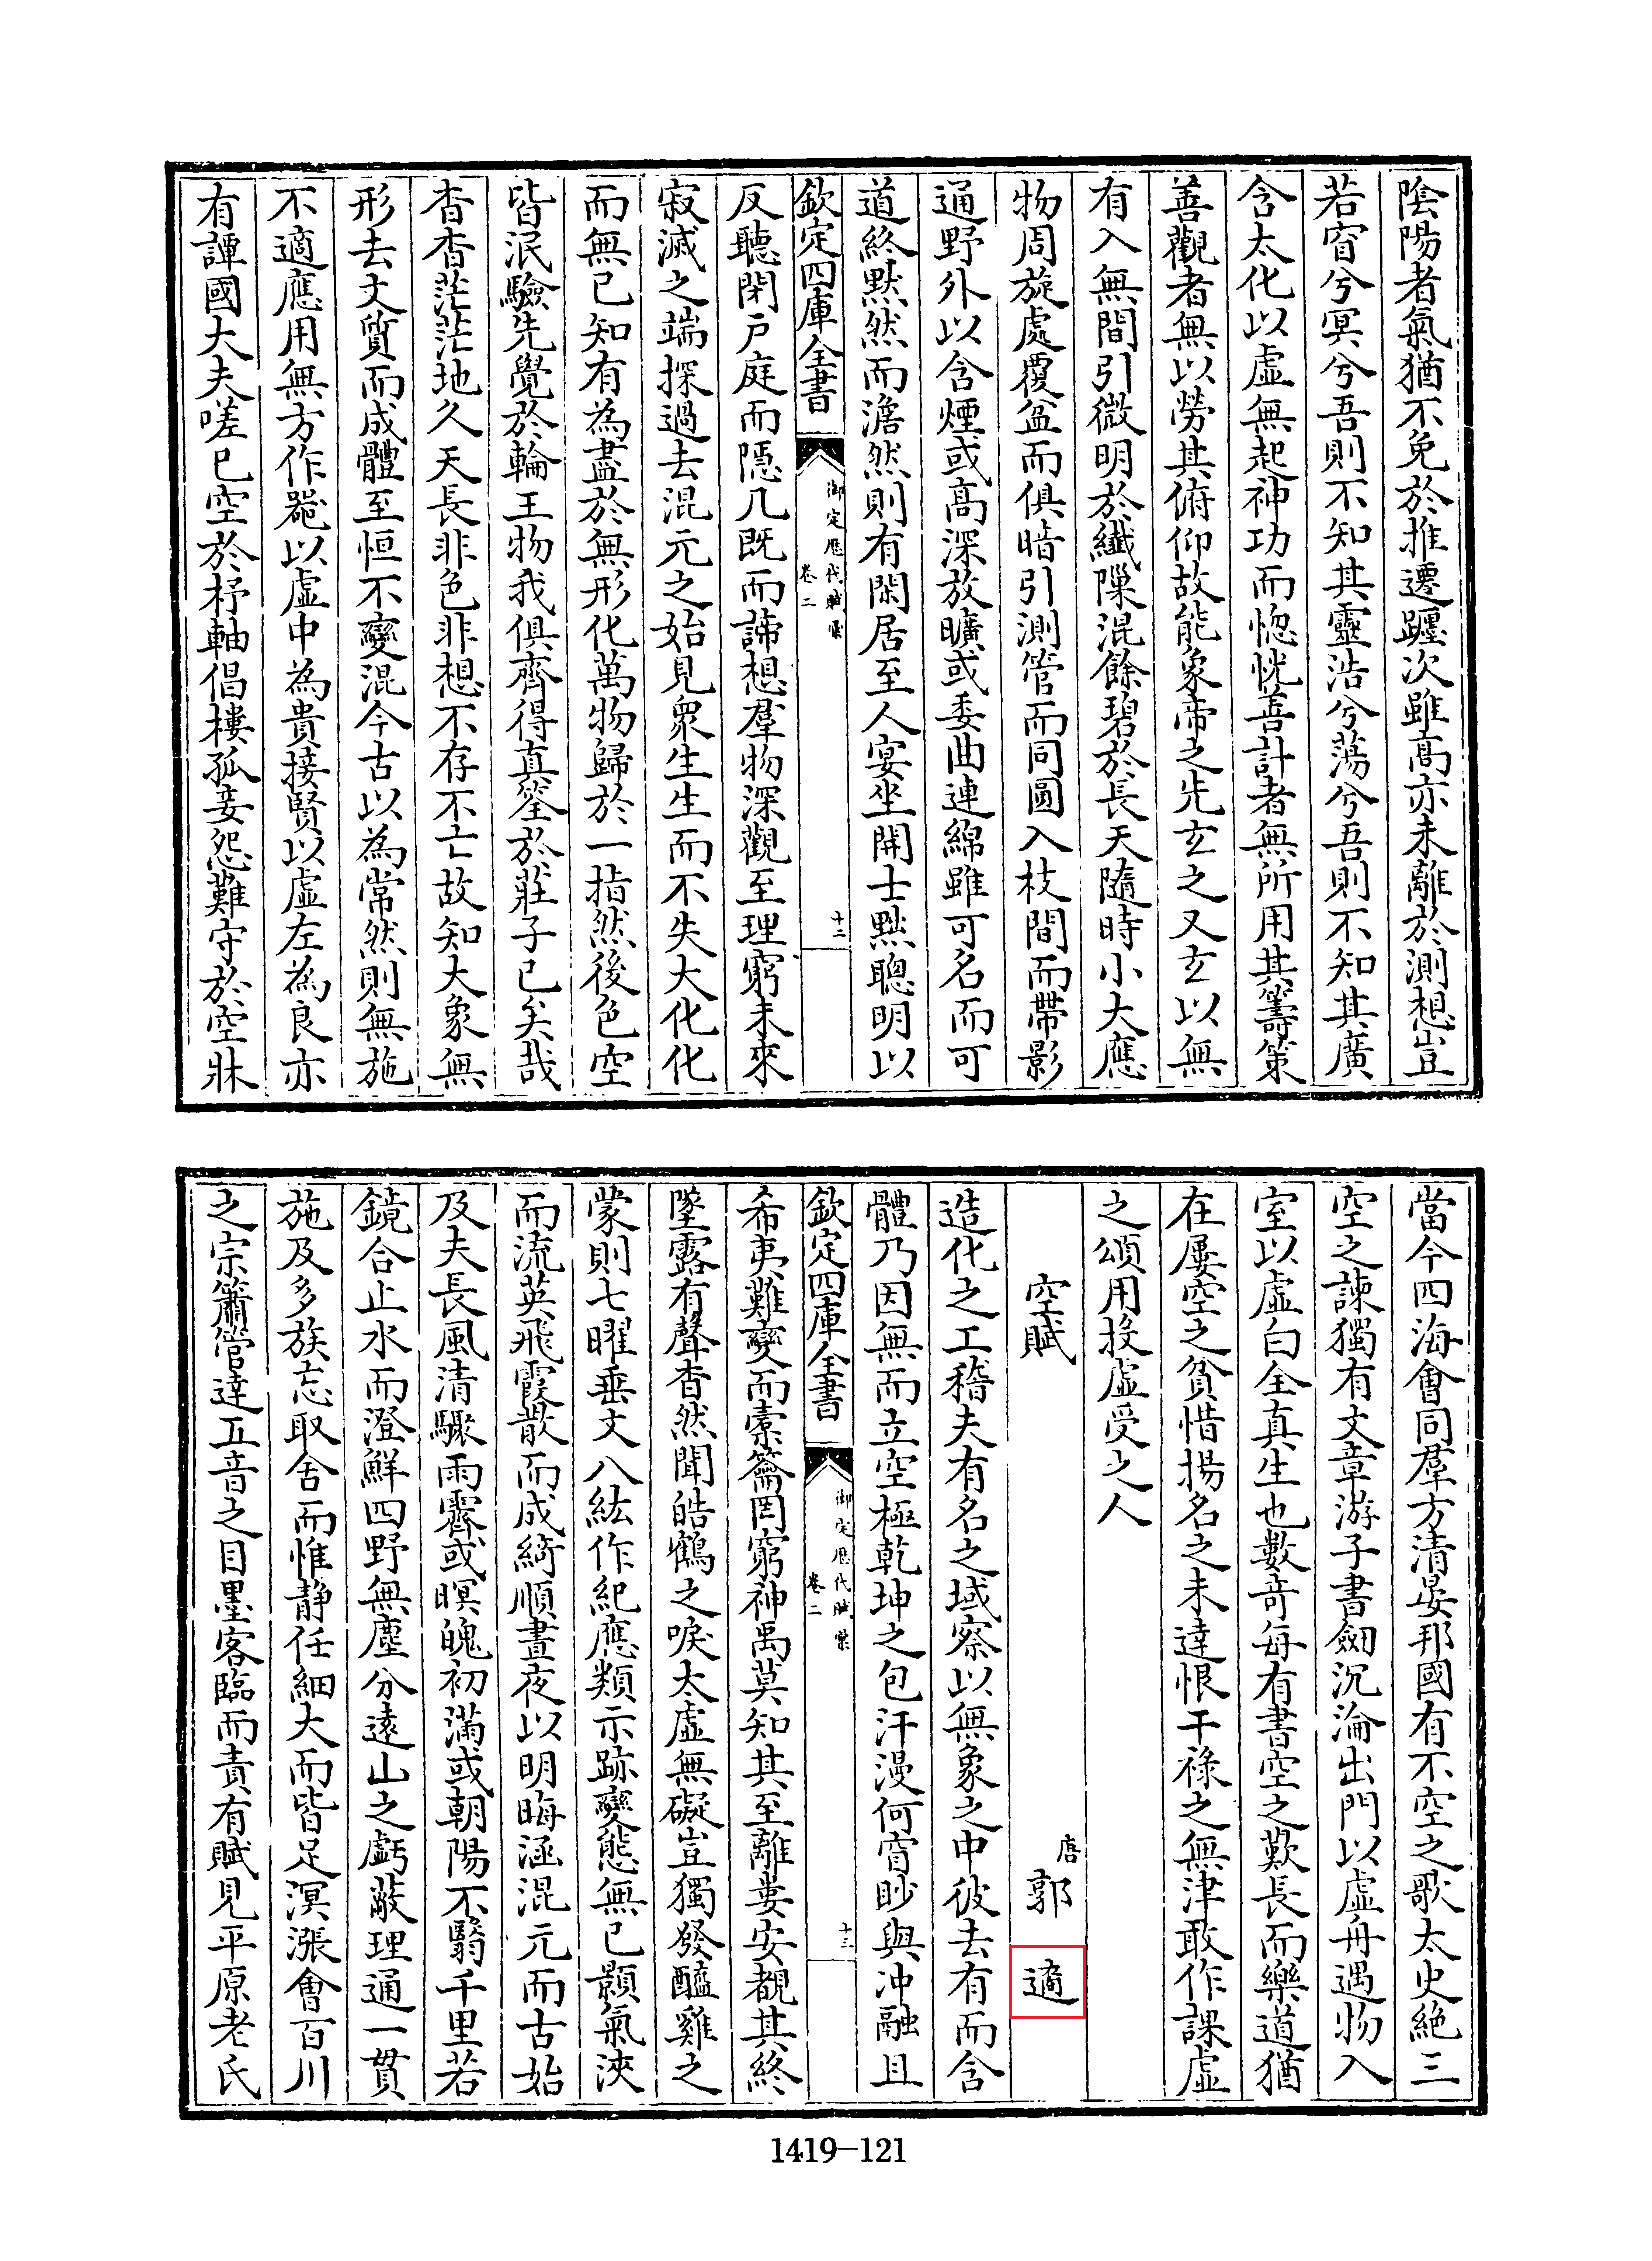 陰陽者氣猶不免於推遷躔次雖高亦未離於測想豈
若窅兮冥兮吾則不知其靈浩兮蕩兮吾則不知其廣
含太化以虛無起神功而惚恍善計者無所用其籌策
善觀者無以勞其俯仰故能象帝之先玄之又玄以無
有入無間引微明於纖隟混餘碧於長天隨時小大應
物周旋處覆盆而俱暗引測管而同圓入枝間而帶影
通野外以含煙或高深放曠或委曲連綿雖可名而可
道終默然而澹然則有閑居至人宴坐開士黜聰明以
欽定四庫全書
御定歷代賦彙
卷二
十二
反聽閉戶庭而隱几既而諦想羣物深觀至理窮未來
寂滅之端探過去混元之始見衆生生而不失大化化
而無已知有為盡於無形化萬物歸於一指然後色空
皆泯驗先覺於輪王物我俱齊得真筌於莊子已矣哉
杳杳茫茫地久天長非色非想不存不亡故知大象無
形去文質而成體至恒不變混今古以為常然則無施
不適應用無方作器以虛中為貴接賢以虛左為良亦
有譚國大夫嗟已空於杼軸倡樓孤妾怨難守於空牀
當今四海會同羣方清晏邦國有不空之歌太史絶三
空之諫獨有文章游子書劒沉淪出門以虛舟遇物入
室以虛白全真生也數奇每有書空之歎長而樂道猶
在屢空之貧惜揚名之未達恨干祿之無津敢作課虛
之頌用投虛受之人
空賦
唐
郭
適
造化之工稽夫有名之域察以無象之中彼去有而含
體乃因無而立空極乾坤之包汗漫何窅眇與沖融且
欽定四庫全書
御定歷代賦彙
卷二
十三
希夷難變而槖籥罔窮神禹莫知其至離婁安覩其終
墜露有聲杳然聞皓鶴之唳太虛無礙豈獨發醯雞之
蒙則七曜垂文八紘作紀應類示跡變態無已顥氣浹
而流英飛霞散而成綺順晝夜以明晦涵混元而古始
及夫長風清驟雨霽或暝魄初滿或朝陽不翳千里若
鏡合止水而澄鮮四野無塵分遠山之虧蔽理通一貫
施及多族忘取舍而惟静任細大而皆足溟漲會百川
之宗簫管達五音之目墨客臨而責有賦見平原老氏
1419-121